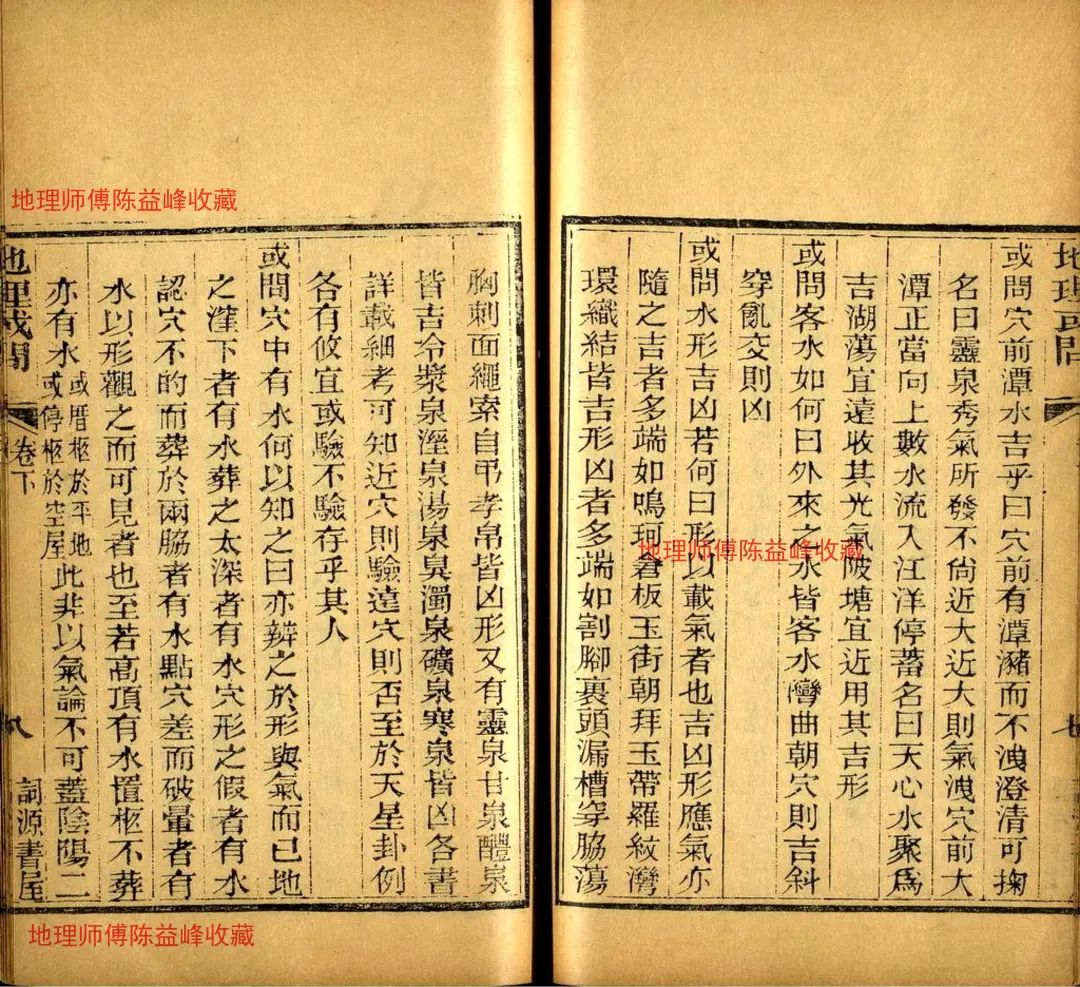 地理或問
七
或問穴前潭水吉乎曰穴前有潭瀦而不洩澄清可掬
名曰靈泉秀氣所發不尙近大近大則氣洩穴前大
潭正當向上數水流入江洋停蓄名曰天心水聚爲
吉湖蕩宜遠收其光氣陂塘宜近用其吉形
或問客水如何曰外來之水皆客水彎曲朝穴則吉斜
穿亂交則凶
或問水形吉凶若何曰形以載氣者也吉凶形應氣亦
隨之吉者多端如鳴珂倉板玉街朝拜玉帶羅紋灣
環織結皆吉形凶者多端如割腳裹頭漏槽穿脇蕩
胸刺面繩索自弔孝帛皆凶形又有靈泉甘泉醴泉
皆吉冷漿泉溼泉湯泉臭濁泉礦泉寒泉皆凶各書
詳載細考可知近穴則驗遠穴則否至於天星卦例
各有攸宜或驗不驗存乎其人
或問穴中有水何以知之曰亦辨之於形與氣而已地
之漥下者有水葬之太深者有水穴形之假者有水
認穴不的而葬於兩脇者有水點穴差而破暈者有
水以形觀之而可見者也至若高頂有水置柩不葬
亦有水或厝柩於平地或停柩於空屋此非以氣論不可蓋陰陽二
地理或問
卷下
八
詞源書屋
地理师傅陈益峰收藏
地理师傅陈益峰收藏
地理师傅陈益峰收藏